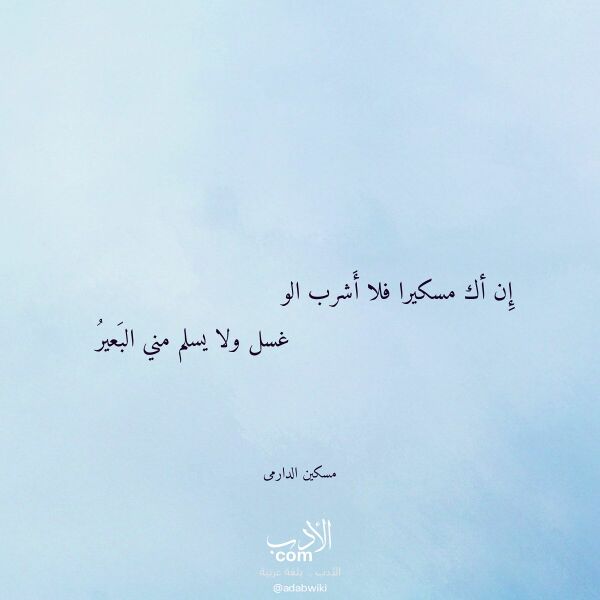 إِن أك مسكيرا فلا أَشرب الو
غسل ولا يسلم مني البَعيرُ
مسكين الدارمى
الأدب
com
الأدب .. بلغة عربية
@adabwiki